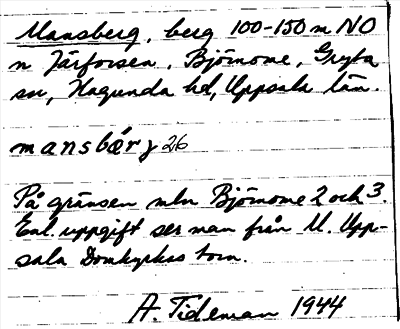 Mansberg, berg 100-150 m NO
n Järforsen, Björnome, Gryta
sn, Hagunda hd, Uppsala län.
mansbärj 26
På gränsen mln Björnome 2 och 3.
Enl. uppgift ser man från M. Upp-
sala Domkyrkas torn.
A. Tideman 1944